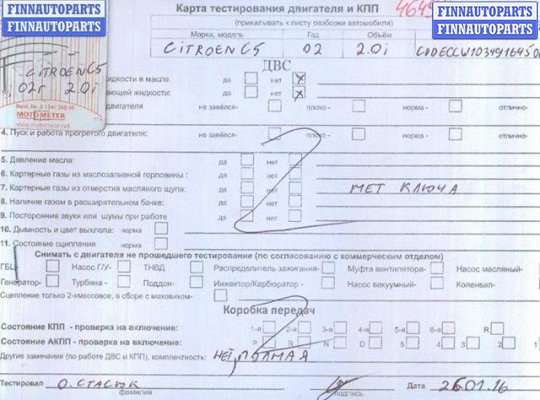 FINNAUTOPARTS
FINNAUTOPARTS
FINNAUTOPARTS
FINNAUTOPARTS
Карта тестирования двигателя и КПП
(прикалывать к листу разборки автомобиля)
Марка, модель Год Объём
CITROEN C5 02 2.0i
CITROEN C5
02г 2.0i
MOTOMETER
ДВС
жидкости в масле: да нет X
ющей жидкости: да нет X
двигателя не завёлся- плохо - норма - отлично-
4. Пуск и работа прогретого двигателя: не завёлся- плохо - норма - отлично-
5. Давление масла: да нет
6. Картерные газы из маслозаливной горловины: да нет
7. Картерные газы из отверстия масляного щупа: да нет НЕТ КЛЮЧА
8. Наличие газов в расширительном бачке: да нет
9. Посторонние звуки или шумы при работе да нет
10. Дымность и цвет выхлопа: норма
11. Состояние сцепления норма
Снимать с двигателя не прошедшего тестирования (по согласованию с коммерческим отделом)
ГБЦ- Насос Г/У- ТНВД Распределитель зажигания- Муфта вентилятора- Насос масляный-
Генератор- Турбина - Поддон- Инжектор/Карбюратор - Насос вакуумный- Коленвал-
Сцепление только 2-хмассовое, в сборе с маховиком-
Коробка передач
Состояние КПП - проверка на включение: 1-я 2-я 3-я 4-я 5-я 6-я R
Состояние АКПП - проверка на включение: P R N D 5 4 3 2
Другие замечания (по работе ДВС и КПП), комплектность: НЕТ, ПОЛНАЯ
Тестировал О. СТАСЮК Дата 26.01.16
фамилия подпись